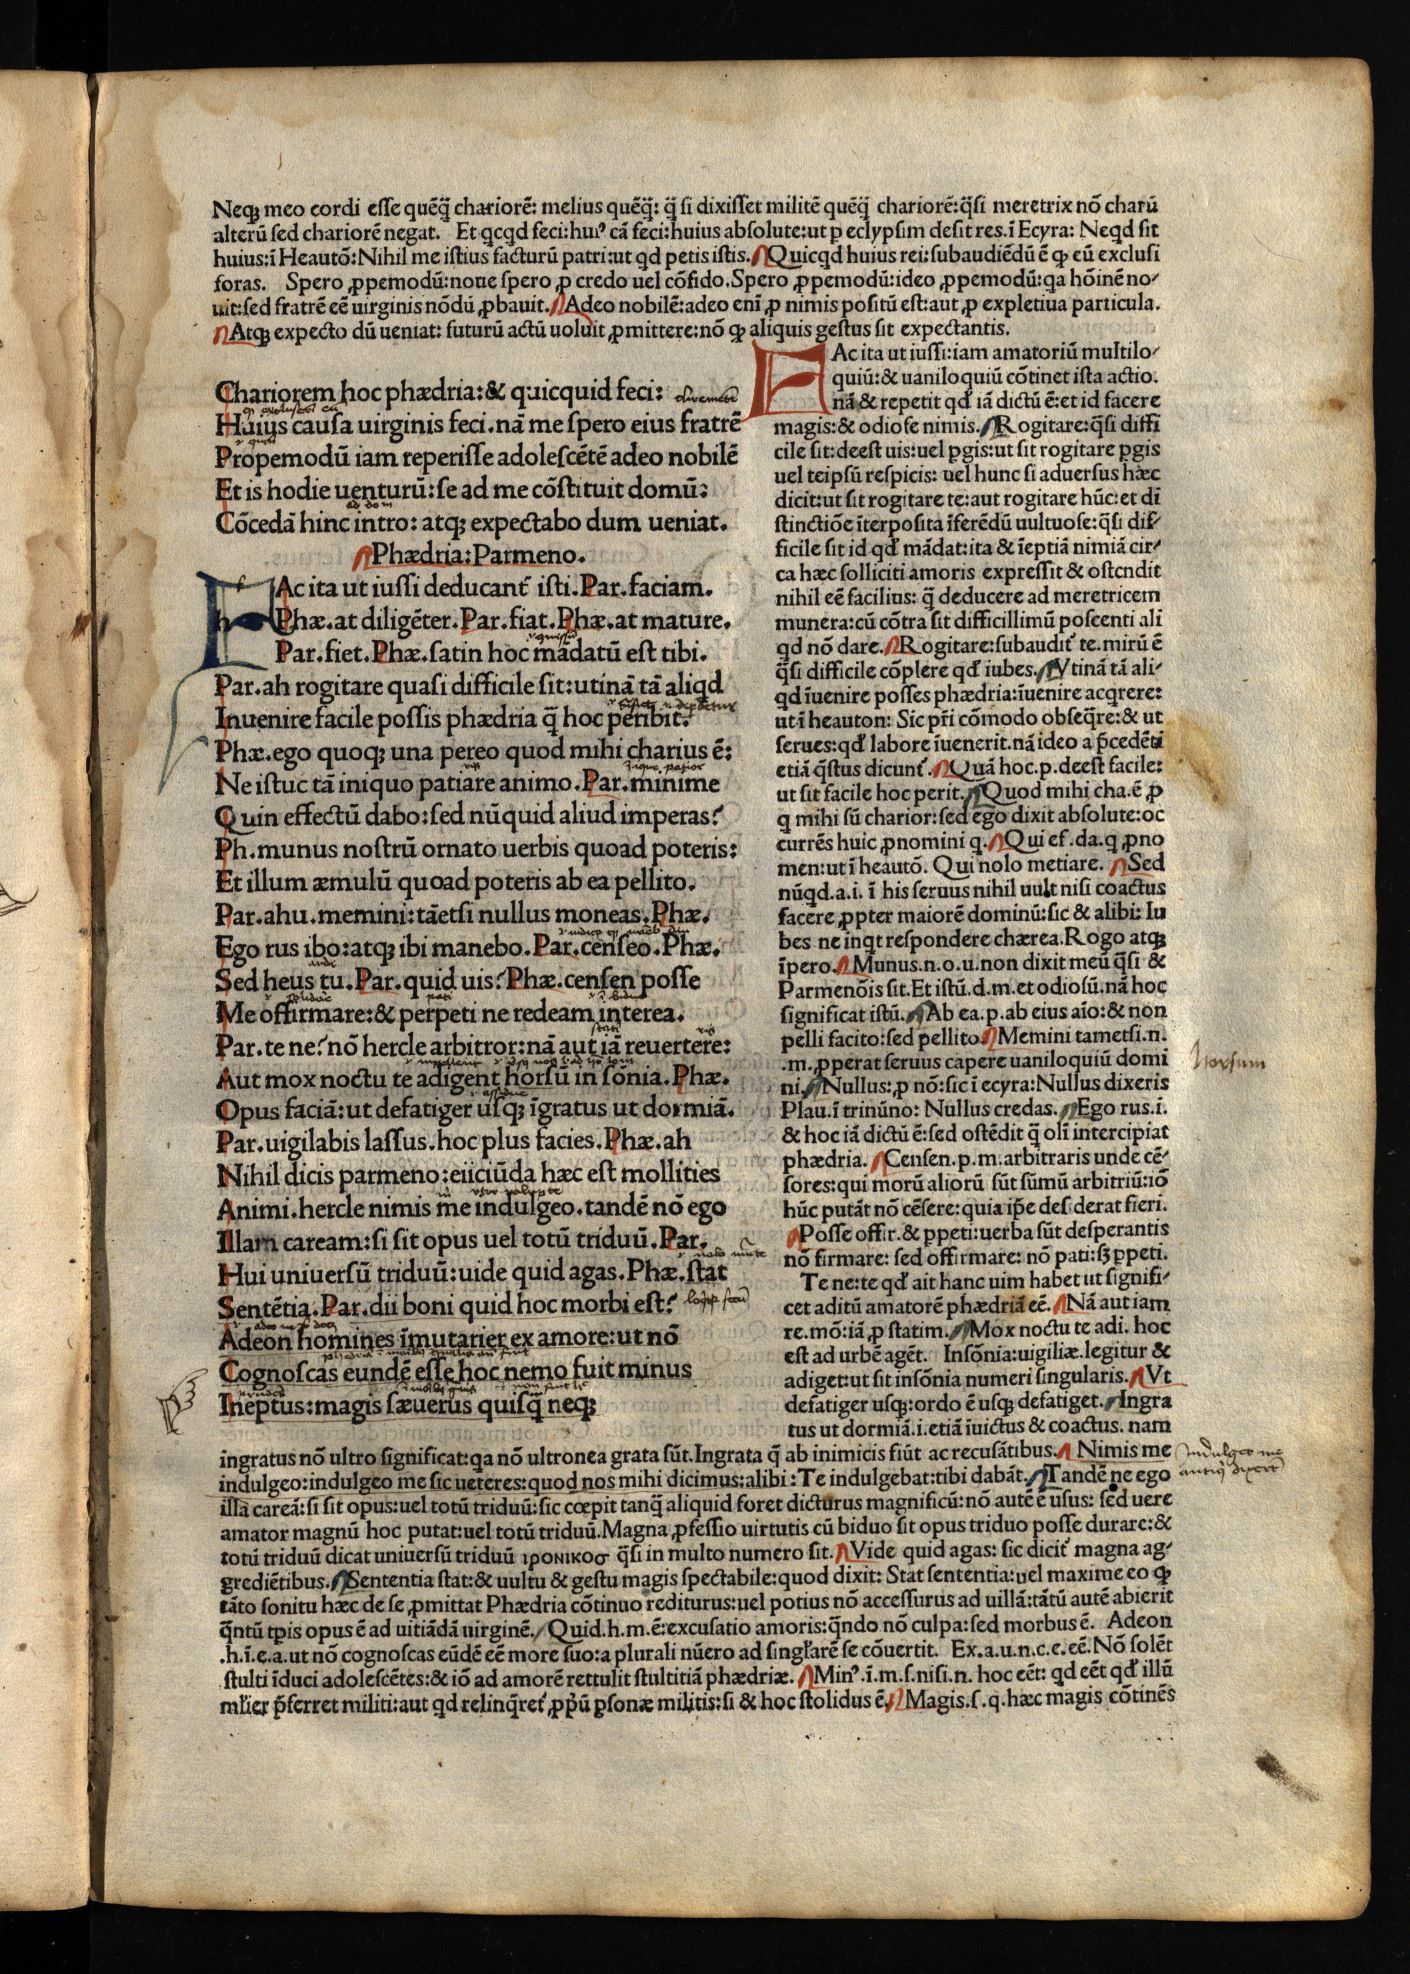 Neqꝫ meo cordi esse quēq̃ chariorē: melius quēq̃: q̃ si dixisset militē quēq̃ chariorē:q̃si meretrix nō charū
alterū sed chariorē negat. Et qcqd feci:huiꝰ cā feci:huius absolute:ut p eclypsim desit res.ī Ecyra: Neqd sit
huius:ī Heautō:Nihil me istius facturū patri:ut qd petis istis. Quicqd huius rei:subaudiēdū ē ꝙ eū exclusi
foras. Spero ꝓpemodū:noue spero ꝓ credo uel cōfido.Spero ꝓpemodū:ideo ꝓpemodū:qa hōinē no-
uit:sed fratrē eē uirginis nōdū ꝓbauit. Adeo nobilē:adeo eni ꝓ nimis positū est:aut ꝓ expletiua particula.
Atqꝫ expecto dū ueniat: futurū actū uoluit ꝓmittere:nō ꝙ aliquis gestus sit expectantis.
Chariorem hoc phædria:& quicquid feci:
Huius causa uirginis feci.nā me spero eius fratrē
Propemodū iam reperisse adolescētē adeo nobilē
Et is hodie uenturū:se ad me cōstituit domū:
Cōcedā hinc intro: atqꝫ expectabo dum ueniat.
Phædria: Parmeno.
FAc ita ut iussi deducant̃ isti.Par.faciam.
Phæ.at diligēter.Par.fiat.Phæ.at mature.
Par.fiet.Phæ.satin hoc mādatū est tibi.
Par.ah rogitare quasi difficile sit:utinā tā aliqd
Inuenire facile possis phædria q̃ hoc peribit.
Phæ.ego quoqꝫ una pereo quod mihi charius ē:
Ne istuc tā iniquo patiare animo.Par.minime
Quin effectū dabo:sed nūquid aliud imperas?
Ph.munus nostrū ornato uerbis quoad poteris:
Et illum æmulū quoad poteris ab ea pellito.
Par.ahu.memini:tāetsi nullus moneas.Phæ.
Ego rus ibo:atqꝫ ibi manebo.Par.censeo.Phæ.
Sed heus tu.Par.quid uis?Phæ.censen posse
Me offirmare:& perpeti ne redeam interea.
Par.te ne?nō hercle arbitror:nā aut iā reuertere:
Aut mox noctu te adigent horsū in sōnia.Phæ.
Opus faciā:ut defatiger usqꝫ īgratus ut dormiā.
Par.uigilabis lassus.hoc plus facies.Phæ.ah
Nihil dicis parmeno:eiiciūda hæc est mollities
Animi.hercle nimis me indulgeo.tandē nō ego
Illam caream:si sit opus uel totū triduū.Par.
Hui uniuersū triduū:uide quid agas.Phæ.stat
Sentētia.Par.dii boni quid hoc morbi est?
Adeon homines īmutarier ex amore:ut nō
Cognoscas eundē esse hoc nemo fuit minus
Ineptus:magis sæuerus quisq̃ neqꝫ
FAc ita ut iussi:iam amatoriū multilo-
quiū:& uaniloquiū cōtinet ista actio.
nā & repetit qd̃ iā dictū ē:et id facere
magis:& odiose nimis. Rogitare:q̃si diffi
cile sit:deest uis:uel pgis:ut sit rogitare pgis
uel teipsū respicis: uel hunc si aduersus hæc
dicit:ut sit rogitare te:aut rogitare hūc:et dī
stinctiōe īterposita īferēdū uultuose:q̃si dif-
ficile sit id qd̃ mādat:ita & īeptiā nimiā cir-
ca hæc solliciti amoris expressit & ostendit
nihil eē facilius: q̃ deducere ad meretricem
munera:cū cōtra sit difficillimū poscenti ali
qd nō dare. Rogitare:subaudit̃ te.mirū ē
q̃si difficile cōplere qd̃ iubes. Vtinā tā ali-
qd īuenire posses phædria:īuenire acqrere:
ut ī heauton: Sic pr̃i cōmodo obseq̃re:& ut
serues:qd̃ labore īuenerit.nā ideo a p̄cedēti
etiā q̃stus dicunt̃. Quā hoc.p.deest facile:
ut sit facile hoc perit. Quod mihi cha.ē ꝓ
q mihi sū charior:sed ego dixit absolute:oc
currēs huic ꝓnomini q. Qui ef.da.q ꝓno
men:ut ī heautō. Qui nolo metiare. Sed
nūqd.a.i. ī his seruus nihil uult nisi coactus
facere ꝓpter maiorē dominū:sic & alibi: Iu
bes ne inqt respondere chærea.Rogo atqꝫ
īpero. Munus.n.o.u.non dixit meū q̃si &
Parmenōis sit.Et istū.d.m.et odiosū.nā hoc
significat istū. Ab ea.p.ab eius aīo:& non
pelli facito:sed pellito. Memini tametsi.n.
.m.ꝓperat seruus capere uaniloquiū domi
ni. Nullus:ꝓ nō:sic ī ecyra:Nullus dixeris
Plau.ī trinūno: Nullus credas. Ego rus.ī.
& hoc iā dictū ē:sed ostēdit q̃ oli intercipiat
phædria. Censen.p.m.arbitraris unde cē-
sores:qui morū aliorū sūt sūmū arbitriū:iō
hūc putāt nō cēsere:quia ip̄e desiderat fieri.
Posse offir.& ꝑpeti:uerba sūt desperantis
nō firmare: sed offirmare: nō pati:sꝫ ꝑpeti.
Te ne:te qd̃ ait hanc uim habet ut signifi-
cet aditū amatorē phædriā eē. Nā aut iam
re.mō:iā ꝓ statim. Mox noctu te adi. hoc
est ad urbē agēt. Insōnia:uigiliæ.legitur &
adiget:ut sit insōnia numeri singularis. Vt
defatiger usqꝫ:ordo ē usqꝫ defatiget. Ingra
tus ut dormiā.i.etiā īuictus & coactus. nam
horsum
ingratus nō ultro significat:qa nō ultronea grata sūt.Ingrata q̃ ab inimicis fiūt ac recusātibus. Nimis me
indulgeo:indulgeo me sic ueteres:quod nos mihi dicimus:alibi:Te indulgebat:tibi dabāt. Tandē ne ego
illā careā:si sit opus:uel totū triduū:sic cœpit tanq̃ aliquid foret dicturus magnificū:nō autē ē usus: sed uere
amator magnū hoc putat:uel totū triduū.Magna ꝓfessio uirtutis cū biduo sit opus triduo posse durare:&
totū triduū dicat uniuersū triduū ιρονικοσ q̃si in multo numero sit. Vide quid agas: sic dicit̃ magna ag-
grediētibus. Sententia stat:& uultu & gestu magis spectabile:quod dixit: Stat sententia:uel maxime eo ꝙ
tāto sonitu hæc de se ꝓmittat Phædria cōtinuo rediturus:uel potius nō accessurus ad uillā:tātū autē abierit
q̃ntū tp̄is opus ē ad uitiādā uirginē. Quid.h.m.ē:excusatio amoris:q̃ndo nō culpa:sed morbus ē. Adeon
.h.ī.e.a.ut nō cognoscas eūdē eē more suo:a plurali nūero ad singl̃arē se cōuertit. Ex.a.u.n.c.e.eē. Nō solēt
stulti īduci adolescētes:& iō ad amorē rettulit stultitiā phædriæ. Minꝰ.ī.m.f.nisi.n. hoc eēt: qd eēt qd̃ illū
ml̃ier p̄ferret militi:aut qd relinq̃ret̃ ꝓpū psonæ militis:si & hoc stolidus ē. Magis.s.q.hæc magis cōtinēs
indulgeo me